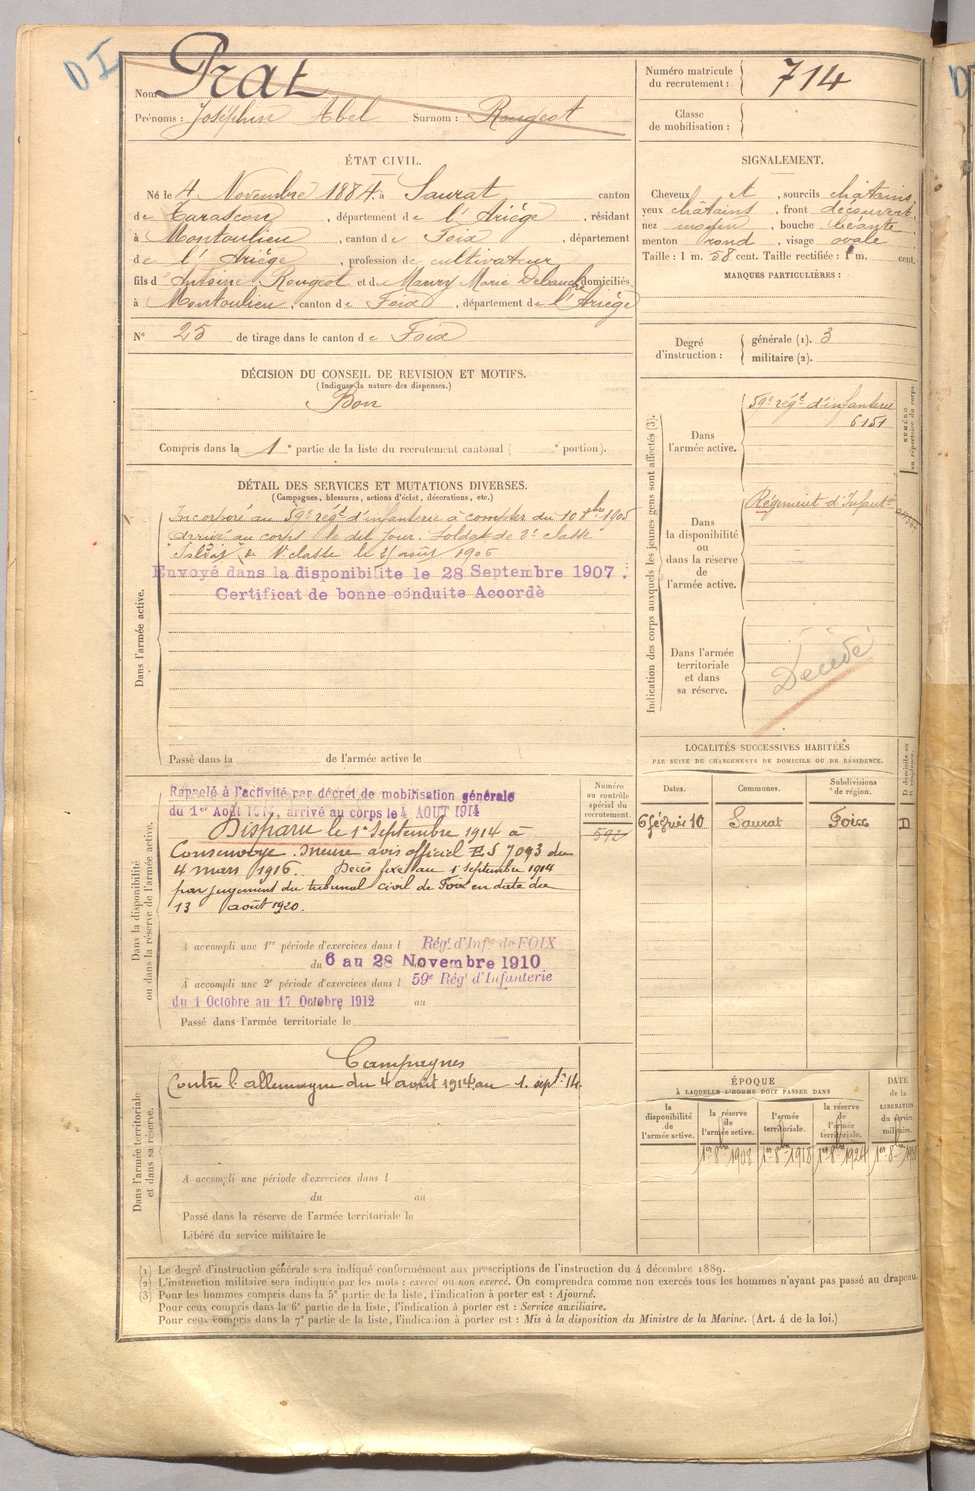 DI
Nom : Prat
Prénoms : Joséphin Abel Surnom : Rougeot
Numéro matricule du recrutement : 714
Classe de mobilisation :
ÉTAT CIVIL.
Né le 4 Novembre 1884, à Saurat canton
de Tarascon, département de l'Ariège, résidant
à Montoulieu, canton de Foix, département
de l'Ariège, profession de cultivateur
fils d'Antoine Rougeot et de Maury Marie domiciliés
à Montoulieu, canton de Foix, département de l'Ariège
N° 25 de tirage dans le canton de Foix
SIGNALEMENT.
Cheveux et, sourcils châtains,
yeux châtains, front découvert,
nez moyen, bouche béante,
menton rond, visage ovale
Taille : 1 m. 58 cent. Taille rectifiée : 1 m. cent.
MARQUES PARTICULIÈRES :
Degré d'instruction : générale (1). 3
militaire (2).
DÉCISION DU CONSEIL DE REVISION ET MOTIFS.
(Indiquer la nature des dispenses.)
Bon
Compris dans la 1e partie de la liste du recrutement cantonal ( e portion).
DÉTAIL DES SERVICES ET MUTATIONS DIVERSES.
(Campagnes, blessures, actions d'éclat, décorations, etc.)
Dans l'armée active.
Incorporé au 59e régt d'infanterie à compter du 10 8bre 1905
Arrivé au corps le dit jour. Soldat de 2e classe
Soldat de 1e classe le août 1906
Envoyé dans la disponibilité le 28 Septembre 1907.
Certificat de bonne conduite Accordé
Passé dans la de l'armée active le
Indication des corps auxquels les jeunes gens sont affectés (3).
NUMÉRO au répertoire du corps.
Dans l'armée active.
59e régt d'infanterie
6151
Dans la disponibilité ou dans la réserve de l'armée active.
Régiment d'Infantie
Dans l'armée territoriale et dans sa réserve.
Décédé
LOCALITÉS SUCCESSIVES HABITÉES
PAR SUITE DE CHANGEMENTS DE DOMICILE OU DE RÉSIDENCE.
Dates. Communes. Subdivisions de région. D domicile ou R résidence.
6 février 10 Saurat Foix D
Dans la disponibilité ou dans la réserve de l'armée active.
Numéro au contrôle spécial du recrutement.
592
Rappelé à l'activité par décret de mobilisation générale
du 1er Août 1914, arrivé au corps le 4 AOUT 1914
Disparu le 1er Septembre 1914 à
Consenvoye. avis officiel E S 7093 du
4 mars 1916. Décès fixé au 1 Septembre 1914
par jugement du tribunal civil de Foix en date du
13 août 1920.
A accompli une 1re période d'exercices dans l Régt d'Infie de FOIX
du 6 au 28 Novembre 1910
A accompli une 2e période d'exercices dans l 59e Régt d'Infanterie
du 1 Octobre au 17 Octobre 1912 au
Passé dans l'armée territoriale le
Dans l'armée territoriale et dans sa réserve.
Campagnes
Contre l'allemagne du 4 août 1914 au 1. septe 14.
A accompli une période d'exercices dans l
du au
Passé dans la réserve de l'armée territoriale le
Libéré du service militaire le
ÉPOQUE
À LAQUELLE L'HOMME DOIT PASSER DANS
DATE de la LIBÉRATION du service militaire.
la disponibilité de l'armée active.
la réserve de l'armée active.
l'armée territoriale.
la réserve de l'armée territoriale.
1er 8bre 1908 1er 8bre 1918 1er 8bre 1924
(1) Le degré d'instruction générale sera indiqué conformément aux prescriptions de l'instruction du 4 décembre 1889.
(2) L'instruction militaire sera indiquée par les mots : exercé ou non exercé. On comprendra comme non exercés tous les hommes n'ayant pas passé au drapeau.
(3) Pour les hommes compris dans la 5e partie de la liste, l'indication à porter est : Ajourné.
Pour ceux compris dans la 6e partie de la liste, l'indication à porter est : Service auxiliaire.
Pour ceux compris dans la 7e partie de la liste, l'indication à porter est : Mis à la disposition du Ministre de la Marine. (Art. 4 de la loi.)